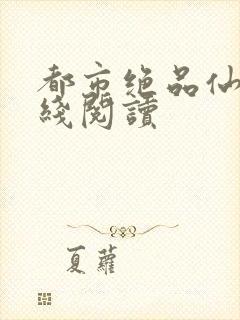 都市绝品仙
綫閱讀
夏蘿